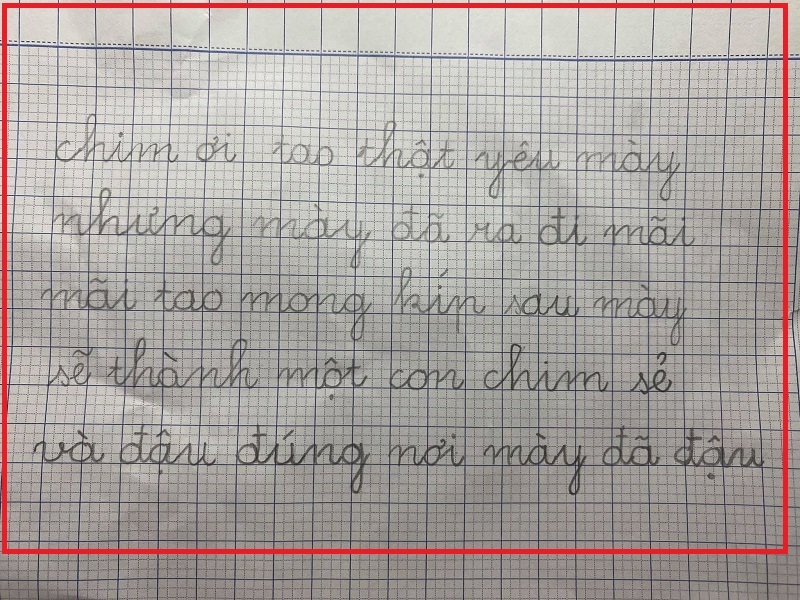 chim ơi tao thật yêu mày
nhưng mày đã ra đi mãi
mãi tao mong kíp sau mày
sẽ thành một con chim sẻ
và đậu đúng nơi mày đã đậu